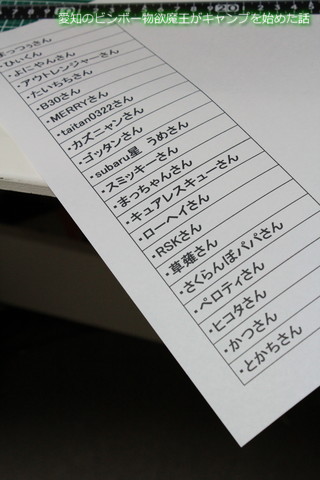 愛知のビンボー物欲魔王がキャンプを始めた話
20
・まっつぅさん
・ひぃくん
・よにやんさん
・アウトレンジャーさん
・たいちちさん
・B30さん
・MERRYさん
・taitan0322さん
・カズニャンさん
・ゴッタンさん
・subaru星　うめさん
・スミッキーさん
・まっちゃんさん
・キュアレスキューさん
・ローヘイさん
・RSKさん
・草薙さん
・さくらんぼパパさん
・ペロティさん
・ヒコタさん
・かつさん
・とかちさん